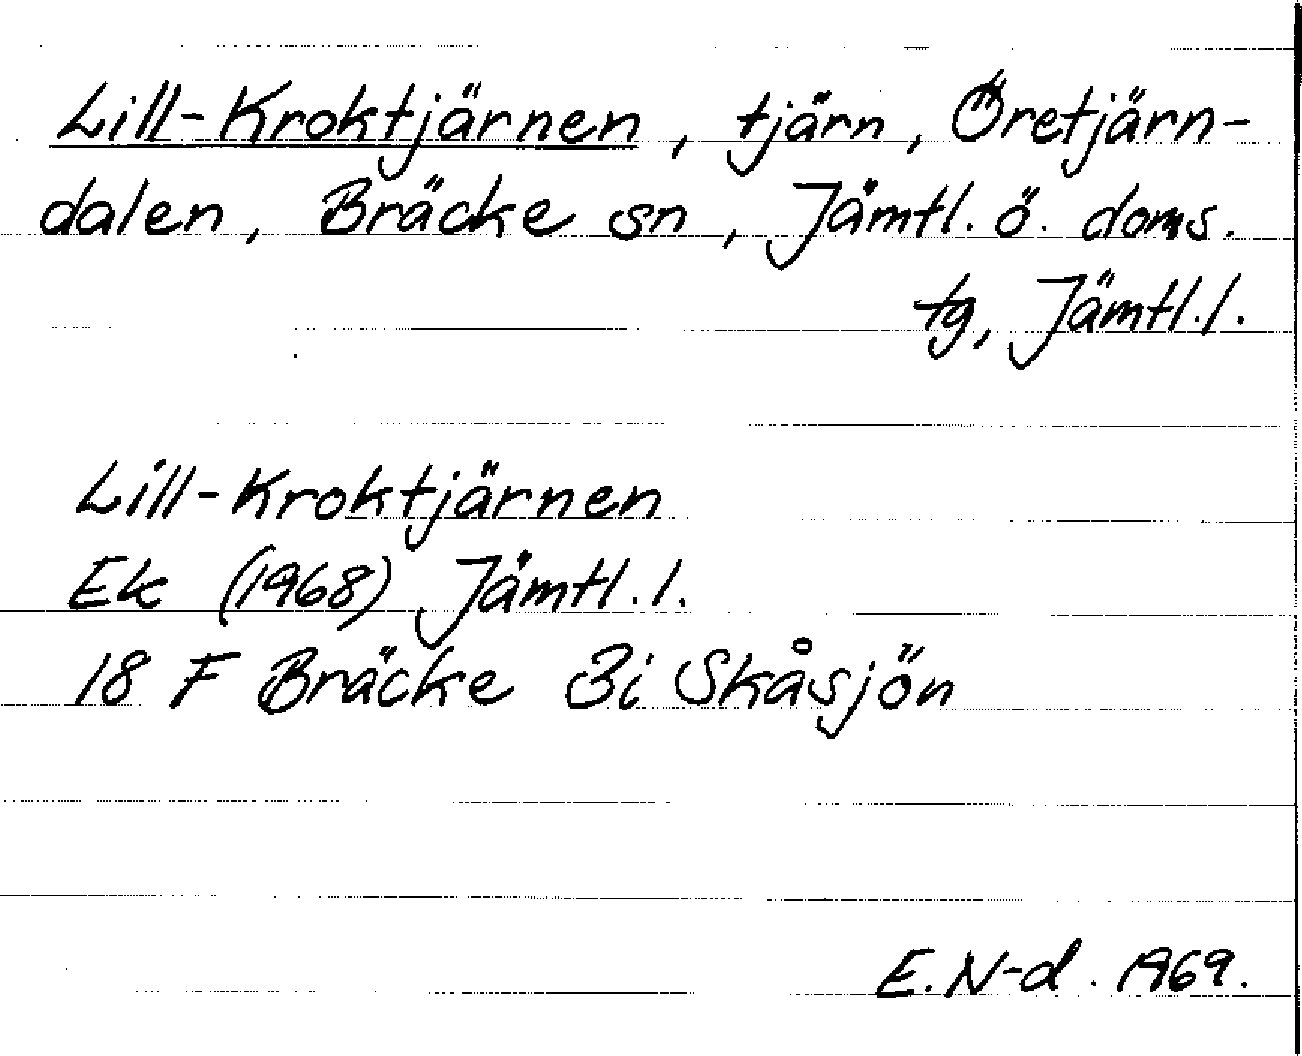 Lill-Kroktjärnen, tjärn, Öretjärn-
dalen, Bräcke sn, Jämtl. ö. doms.
tg, Jämtl. l.
Lill-Kroktjärnen
Ek (1968) Jämtl. l.
18 F Bräcke 3i Skåsjön
E. N-d. 1969.